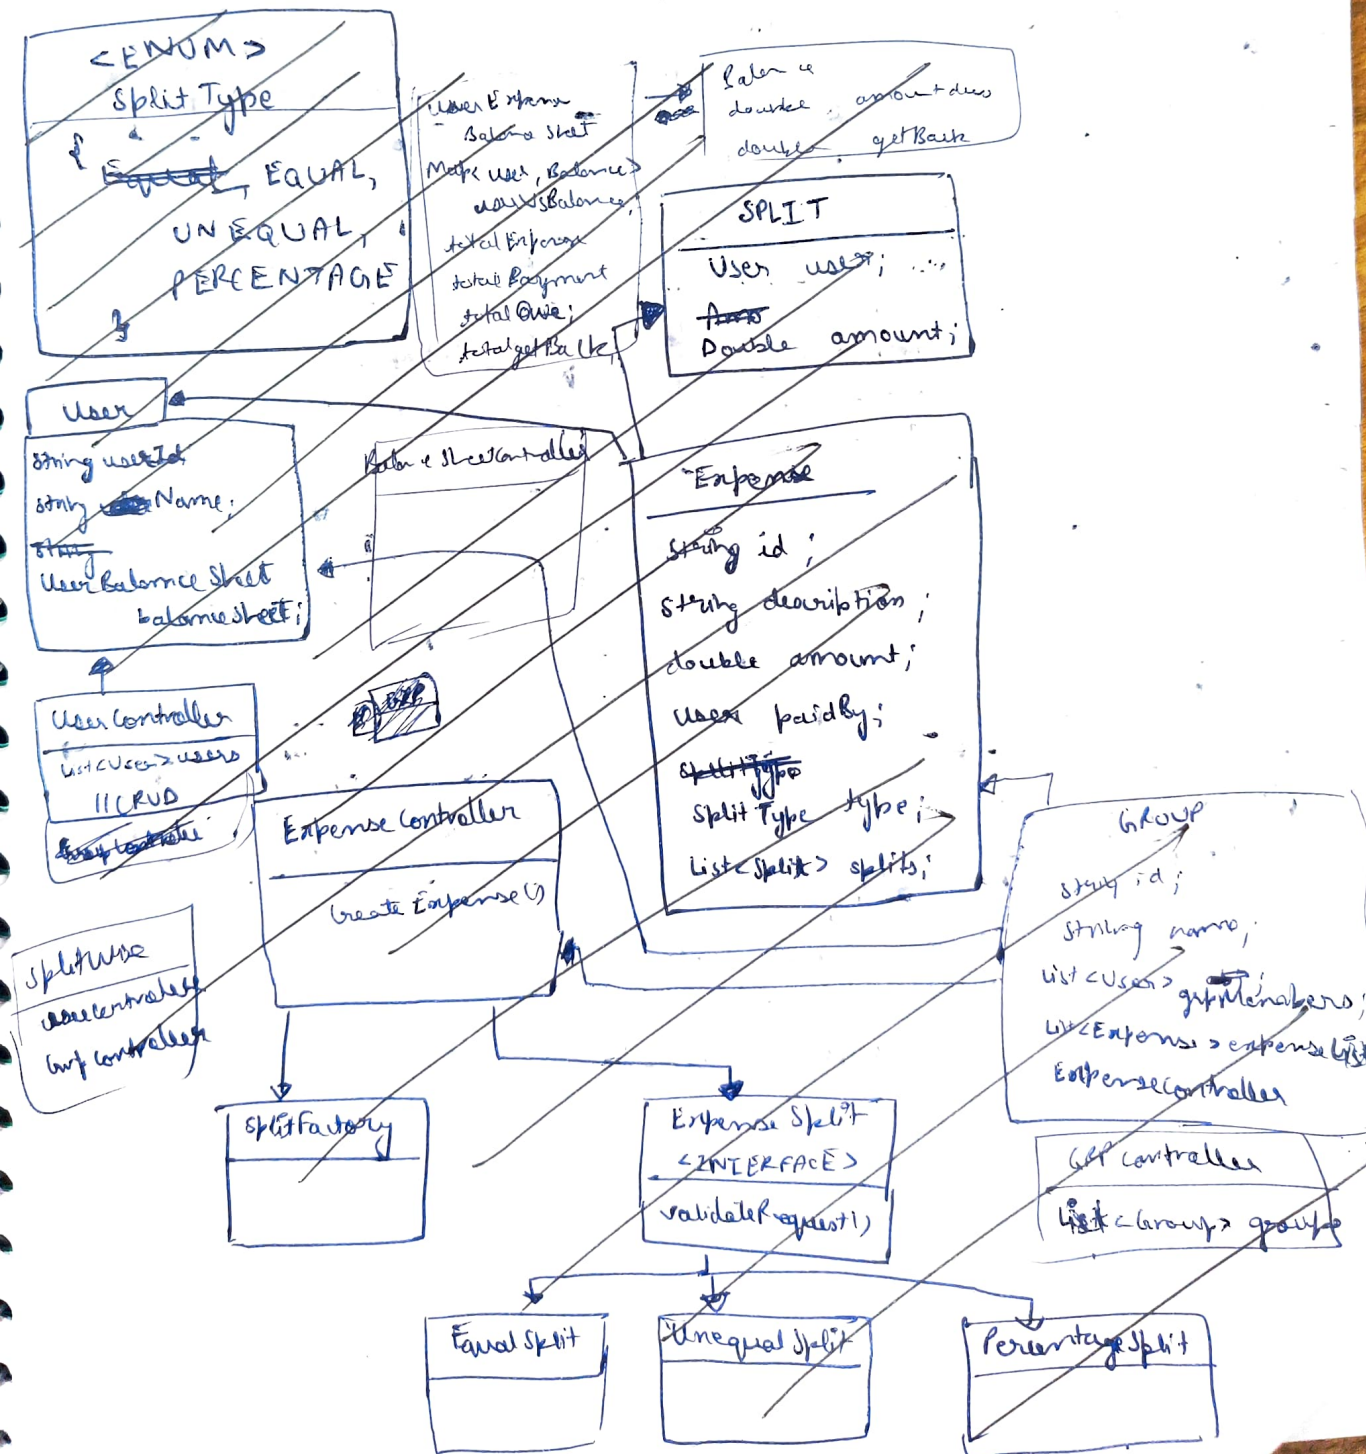 <ENUM>
Split Type
{
Equal, EQUAL,
UNEQUAL,
PERCENTAGE
}
User Expense
Balance Sheet
Map< user, Balance>
userVsBalance;
total Expense
total Payment
total Owe;
total getBack;
Balance
double amount owe
double getBack
SPLIT
User user;
Amo
Double amount;
User
String userId
String Name;
String
UserBalance Sheet
balanceSheet;
Balance SheetController
Expense
String id ;
String description ;
double amount;
User paidBy;
SplitType
Split Type type;
List<Split> splits;
UserController
List<User> users
//CRUD
Expense Controller
Create Expense()
GRP
GROUP
String id ;
String name;
List <User> grpMembers;
List<Expense> expenseList
ExpenseController
Splitwise
userController
Grp controller
SplitFactory
Expense Split
<INTERFACE>
validateRequest()
GRP controller
List <Group> groups
Equal Split
Unequal Split
Percentage Split